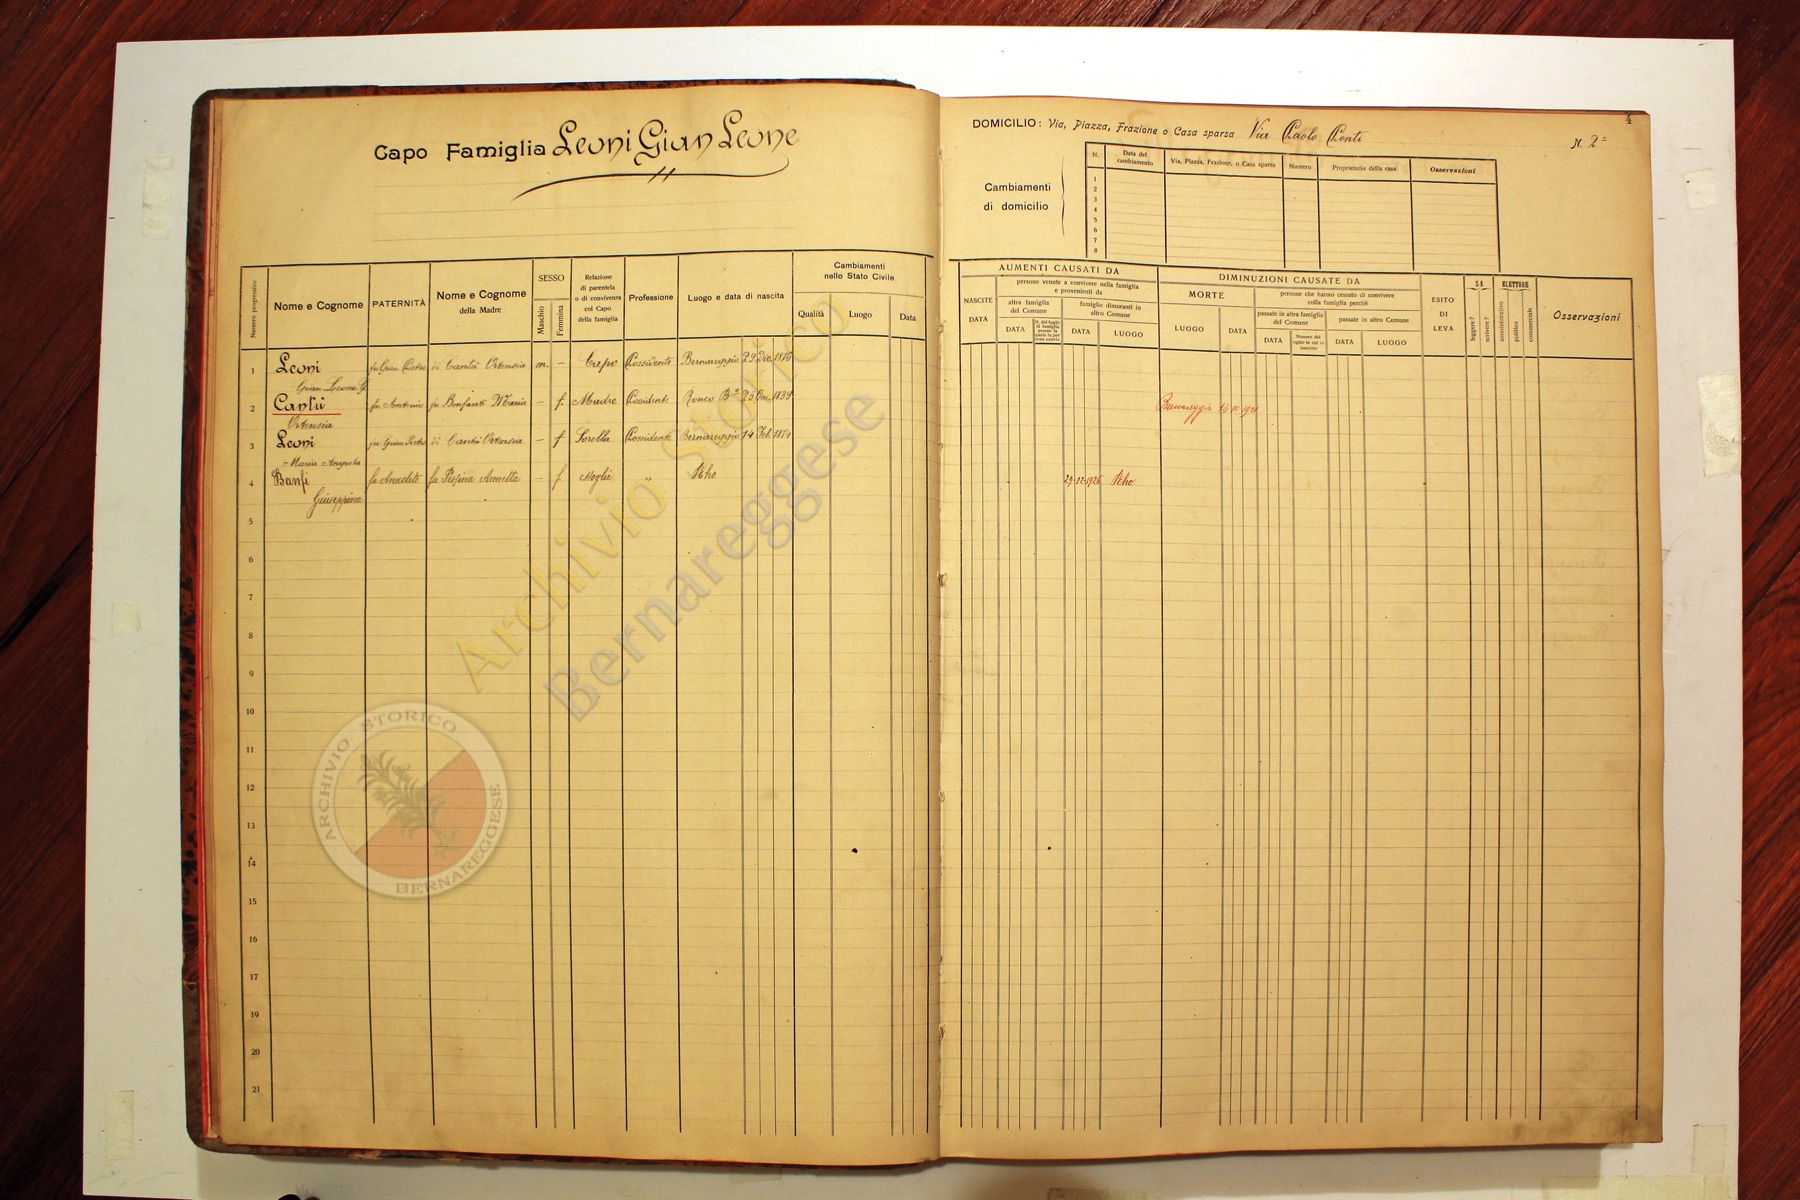 Capo Famiglia Leoni Gian Leone
4
DOMICILIO: Via, Piazza, Frazione o Casa sparsa Via Paolo Ponti
N. 2
Cambiamenti di domicilio
N. Data del cambiamento Via, Piazza, Frazione, o Casa sparsa Numero Proprietario della casa Osservazioni
1
2
3
4
5
6
7
8
Numero progressivo
Nome e Cognome
PATERNITÀ
Nome e Cognome della Madre
SESSO
Maschio
Femmina
Relazione di parentela o di convivenza col Capo della famiglia
Professione
Luogo e data di nascita
Cambiamenti nello Stato Civile
Qualità
Luogo
Data
AUMENTI CAUSATI DA
NASCITE
DATA
persone venute a convivere nella famiglia e provenienti da
altra famiglia del Comune
DATA
N. del foglio di famiglia presso la quale la persona conviv.
famiglie dimoranti in altro Comune
DATA
LUOGO
DIMINUZIONI CAUSATE DA
MORTE
LUOGO
DATA
persone che hanno cessato di convivere colla famiglia perchè
passate in altra famiglia del Comune
DATA
Numero del foglio in cui es inscritto
passate in altro Comune
DATA
LUOGO
ESITO DI LEVA
SA
leggere?
scrivere?
ELETTORE
amministrativo
politico
commerciale
Osservazioni
1 Leoni fu Gian Pietro di Cantù Ortensia m. – Capo Possidente Bernareggio 29 Dic.
Gian Leone
2 Cantù fu Antonio fu Bonfanti Maria – f. Madre Possidente Ronco B.no 25 Gen. 1839 Bernareggio
Ortensia
3 Leoni fu Gian Pietro di Cantù Ortensia – f Sorella Possidente Bernareggio 14 Feb.
Maria
4 Banfi fu Anacleto fu Annetta – f Moglie " Rho 29-12-1926 Rho
Giuseppina
5
6
7
8
9
10
11
12
13
14
15
16
17
18
19
20
21
Archivio Storico
Bernareggese
ARCHIVIO STORICO
BERNAREGGESE